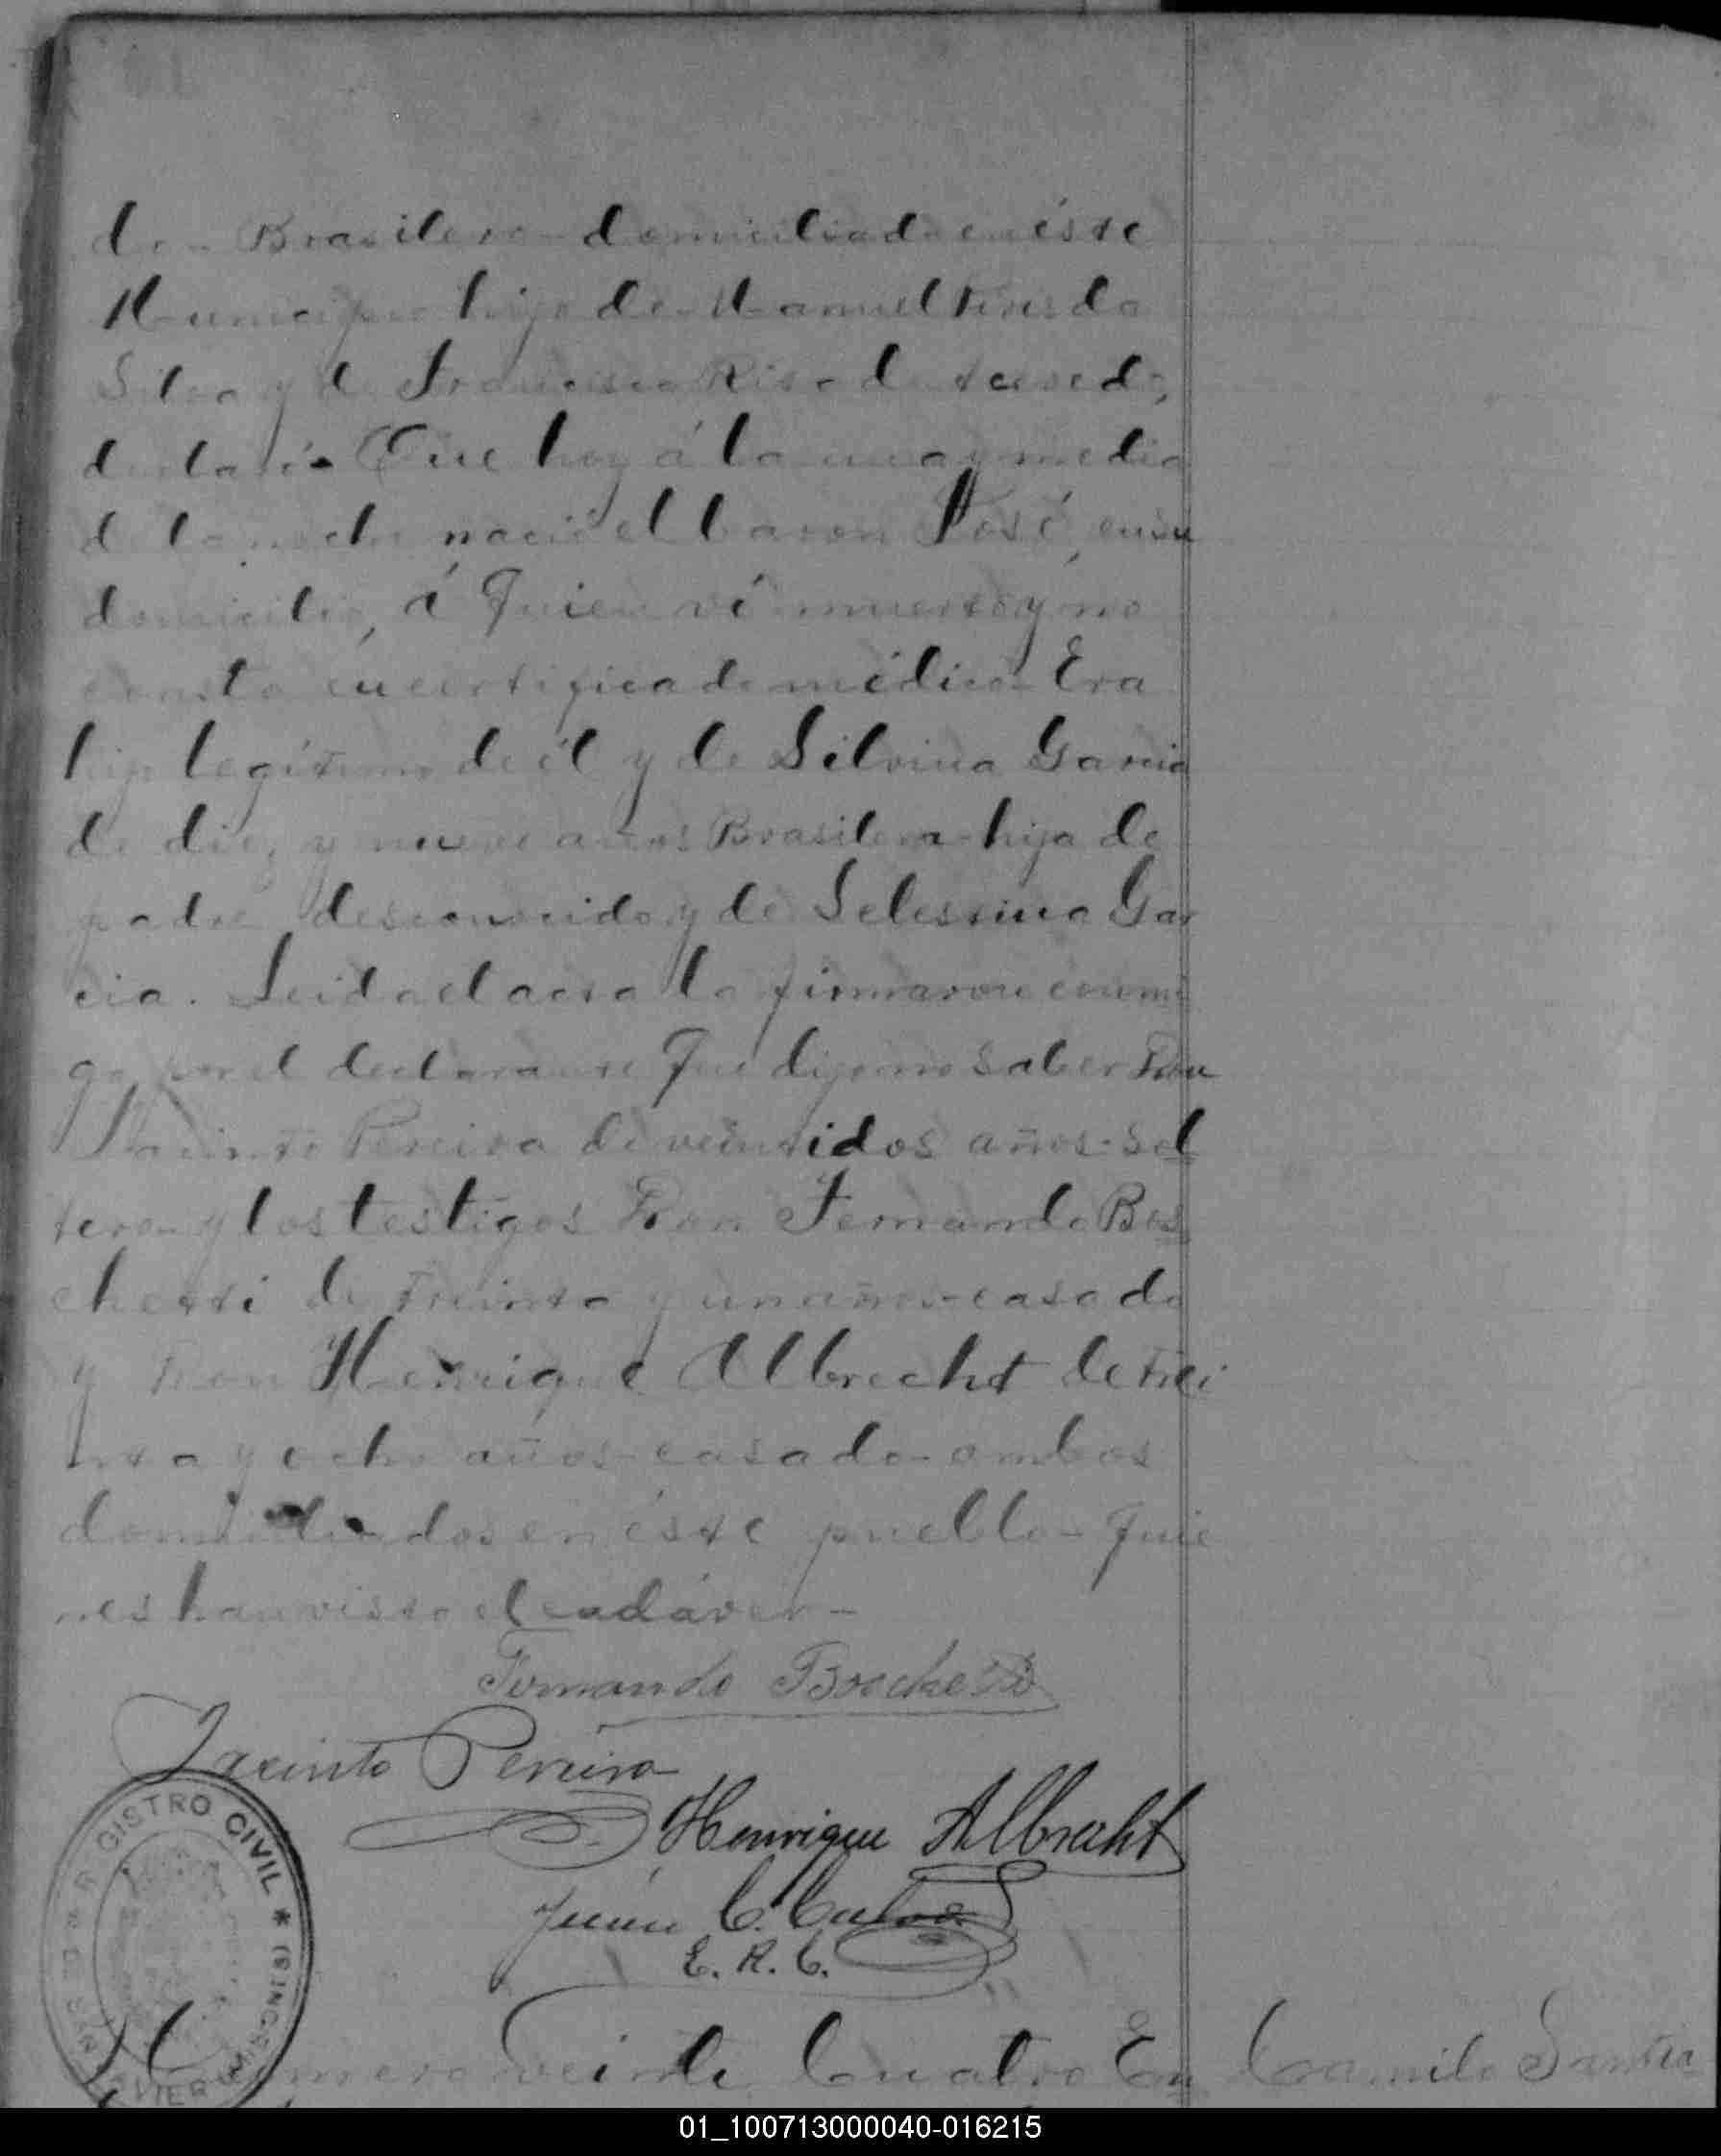 do - Brasilero - domiciliado en éste
Municipio hijo de Manuel da
Silva y de Francisca Risa de
declaró. Que hoy á la una y media
de la noche nació el baron José, en su
domicilio, á quien ví muerto y no
consta en certificado médico - Era
hijo legítimo de él y de Silvina Garcia
de diez y nueve años Brasilera - hija de
padre desconocido y de Selestina Gar
cia. Leida el acta la firmaron conmi
go por el declarante que dijo no saber Don
Jacinto Pereira de veintidos años - sol
tero - y los testigos Don Fernando Bos
chetti de treinta y un años - casado
y Don Henrique Albrecht de trei
nta y ocho años - casado - ambos
domiciliados en éste pueblo - quie
nes han visto el cadáver -
Fernando Boschetti
Jacinto Pereira
Henrique Albrecht
Juan C.
E. R. C.
REGISTRO CIVIL * (MISIONES)
SAN JAVIER
Número veinte Cuatro En
Camilo Santa
01_100713000040-016215